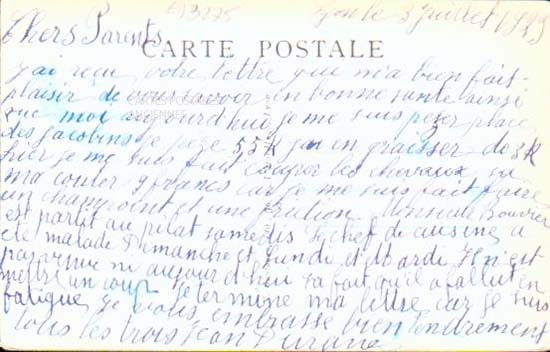 E13275
Lyon le 3 Juillet 1929
Chers Parents
CARTE POSTALE
J'ai reçu votre lettre que m'a bien fait
plaisir de vous savoir en bonne santé ainsi
que moi aujourd'hui je me suis pezer place
des jacobins je pèze 55K j'ai en graisser de 3K
hier je me suis fait couper les cheveaux sa
ma couter 9 francs car je me suis fait faire
un champoint et une friction Monsieur Bouvier
est partit au pilat samedis le chef de cuisine a
été malade Dimanche et Lundi et Mardi Il n'est
pas venue ni aujourd'hui sa fait qu'il a fallut en
mettre un coup je termine ma lettre car je suis
fatigué je vous embrasse bien tendrement
tous les trois Jean